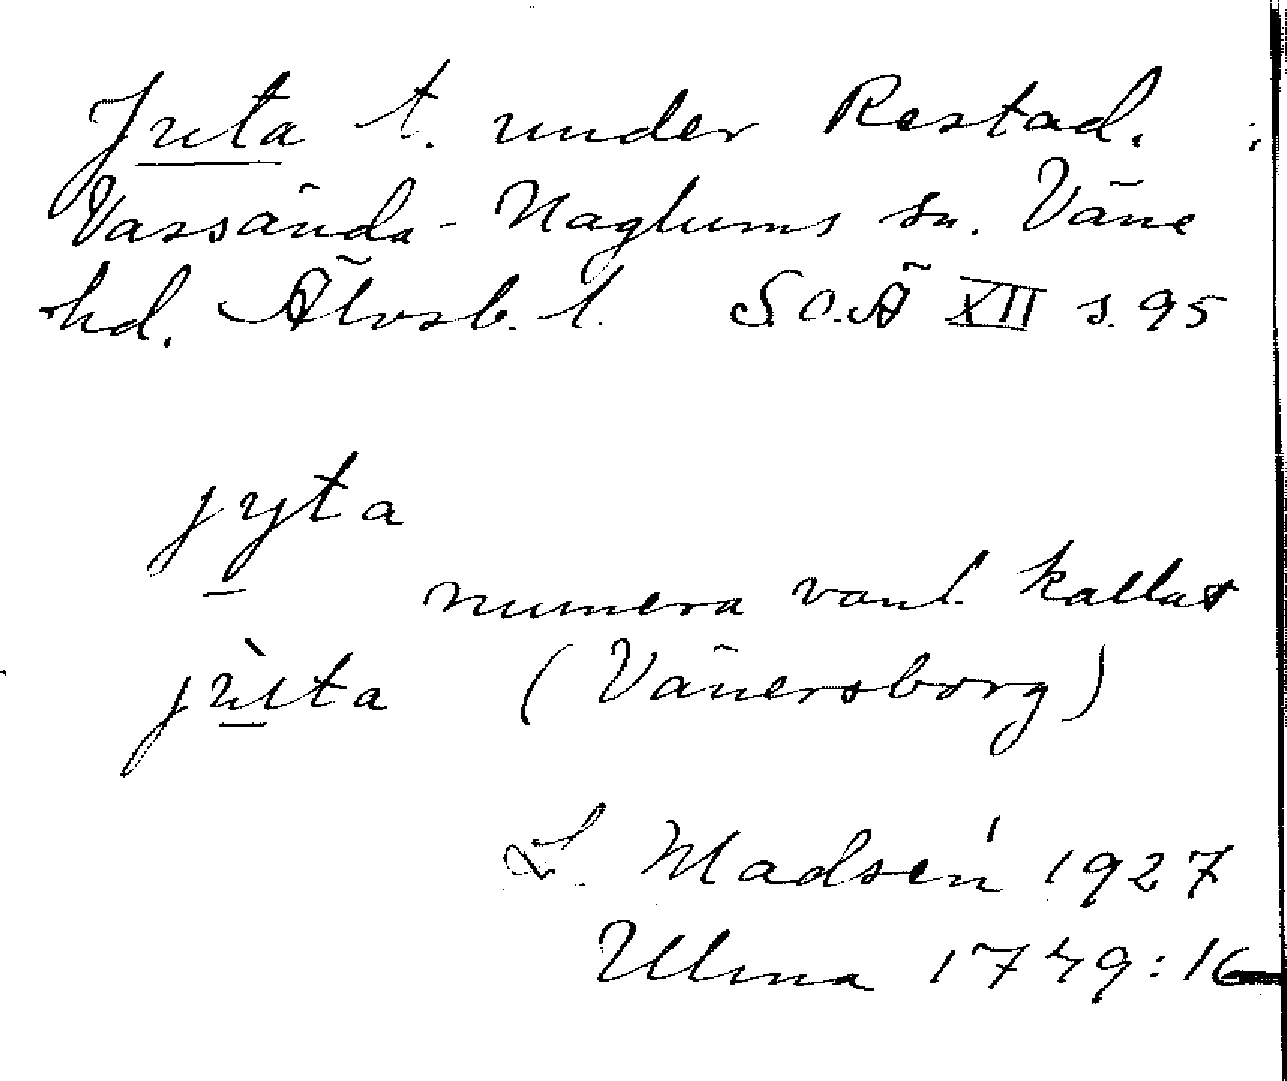 Juta t. under Restad. i
Vassända-Naglums sn. Väne
hd. Älvsb. l. S.O.Ä XII s. 95
jyta
numera vanl. kallat
jùta (Vänersborg)
L. Madsén 1927
Ulma 1749:16